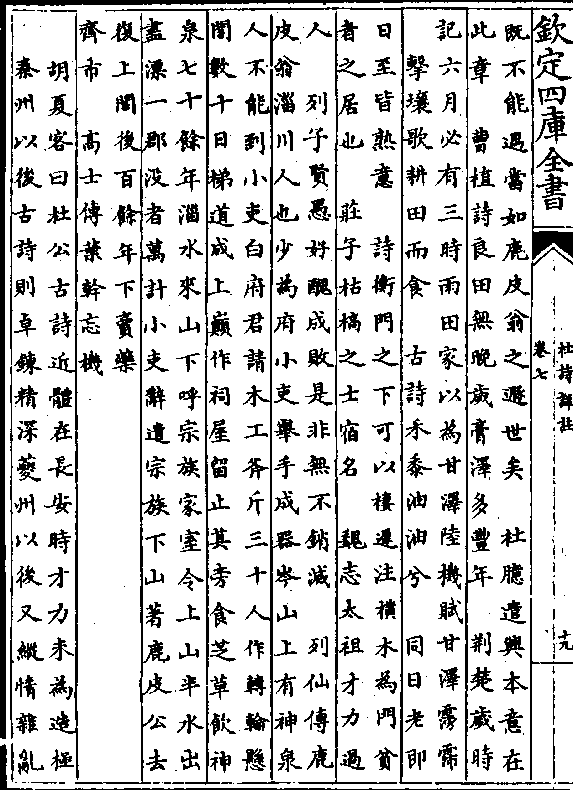 欽定四庫全書
杜詩詳註
卷七
十九
既不能遇當如鹿皮翁之遯世矣　杜臆遣興本意在
此章　曹植詩良田無晚歲膏澤多豐年　荆楚歲時
記六月必有三時雨田家以為甘澤陸機賦甘澤霶霈
擊壤歌耕田而食　古詩禾黍油油兮　同日老即
日至皆熟意　詩衡門之下可以棲遲注横木為門貧
者之居也　莊子枯槁之士宿名　魏志太祖才力過
人　列子賢愚好醜成敗是非無不銷滅　列仙傳鹿
皮翁淄川人也少為府小吏舉手成器岑山上有神泉
人不能到小吏白府君請木工斧斤三十人作轉輪懸
閣數十日梯道成上巔作祠屋留止其旁食芝草飲神
泉七十餘年淄水來山下呼宗族家室令上山半水出
盡漂一郡没者萬計小吏辭遣宗族下山著鹿皮公去
復上閣後百餘年下賣藥
齊市　高士傳葉幹忘機
胡夏客曰杜公古詩近體在長安時才力未為造極
秦州以後古詩則卓鍊精深夔州以後又縱情雜亂